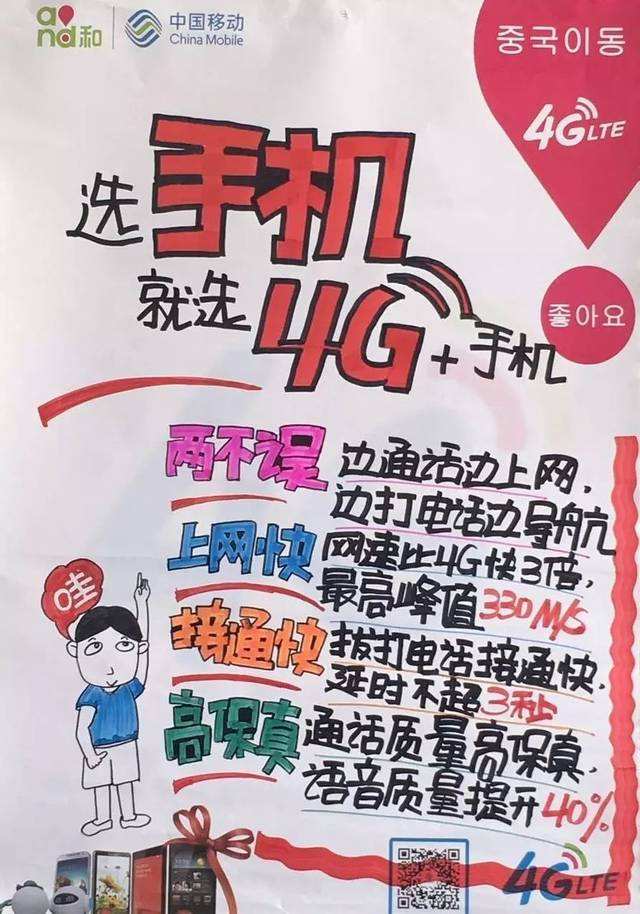 and和
中国移动
China Mobile
중국이동
4G LTE
选手机
就选4G+手机
좋아요
两不误
边通话边上网,
边打电话边导航
上网快
网速比4G快3倍,
最高峰值330M/S
哇
接通快
拨打电话接通快,
延时不超3秒
高保真
通话质量高保真,
语音质量提升40%
4G LTE